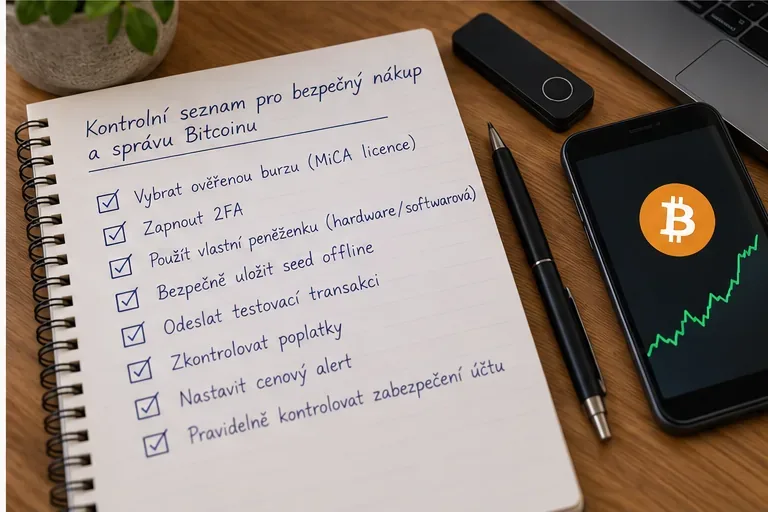 Kontrolní seznam pro bezpečný nákup
a správu Bitcoinu
Vybrat ověřenou burzu (MiCA licence)
Zapnout 2FA
Použít vlastní peněženku (hardware/softwarová)
Bezpečně uložit seed offline
Odeslat testovací transakci
Zkontrolovat poplatky
Nastavit cenový alert
Pravidelně kontrolovat zabezpečení účtu